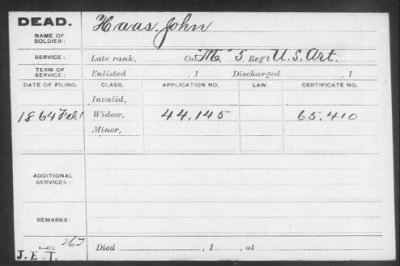 DEAD.
NAME OF SOLDIER: Haas, John
SERVICE: Late rank, Co. "M," 5 Reg't U.S. Art.
TERM OF SERVICE: Enlisted , 1 Discharged , 1
DATE OF FILING. CLASS. APPLICATION NO. LAW. CERTIFICATE NO.
Invalid,
1864 Feb 1 Widow, 44,145 65,410
Minor,
ADDITIONAL SERVICES:
REMARKS:
267
J.E.T. Died , 1 , at